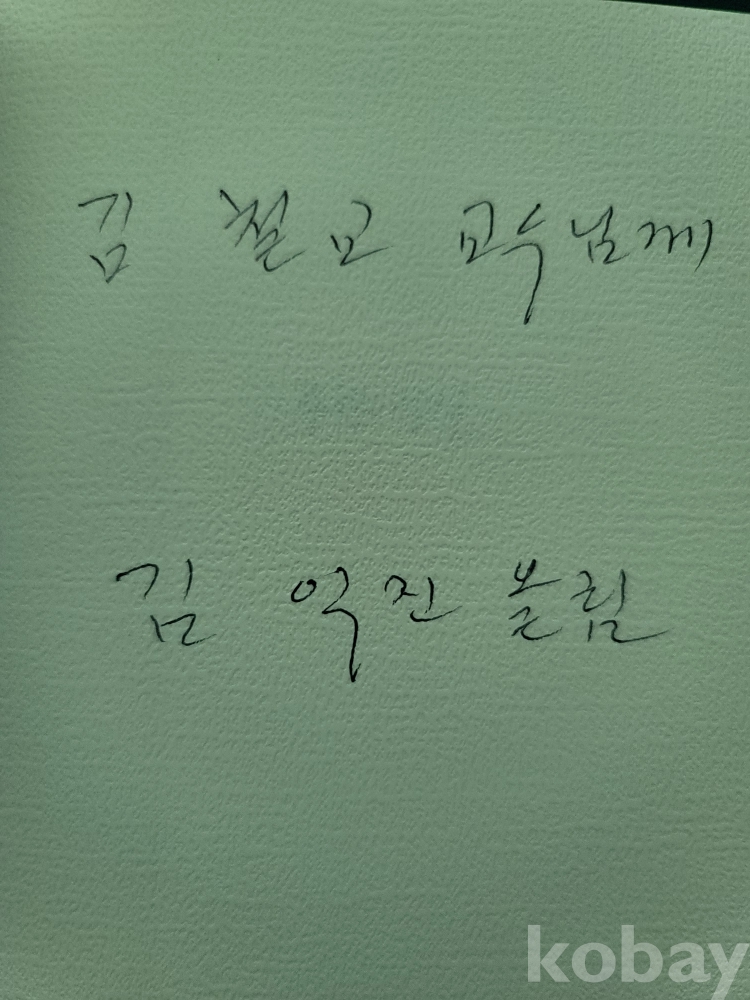 김 철교 교수님께
김 억진 올림
kobay